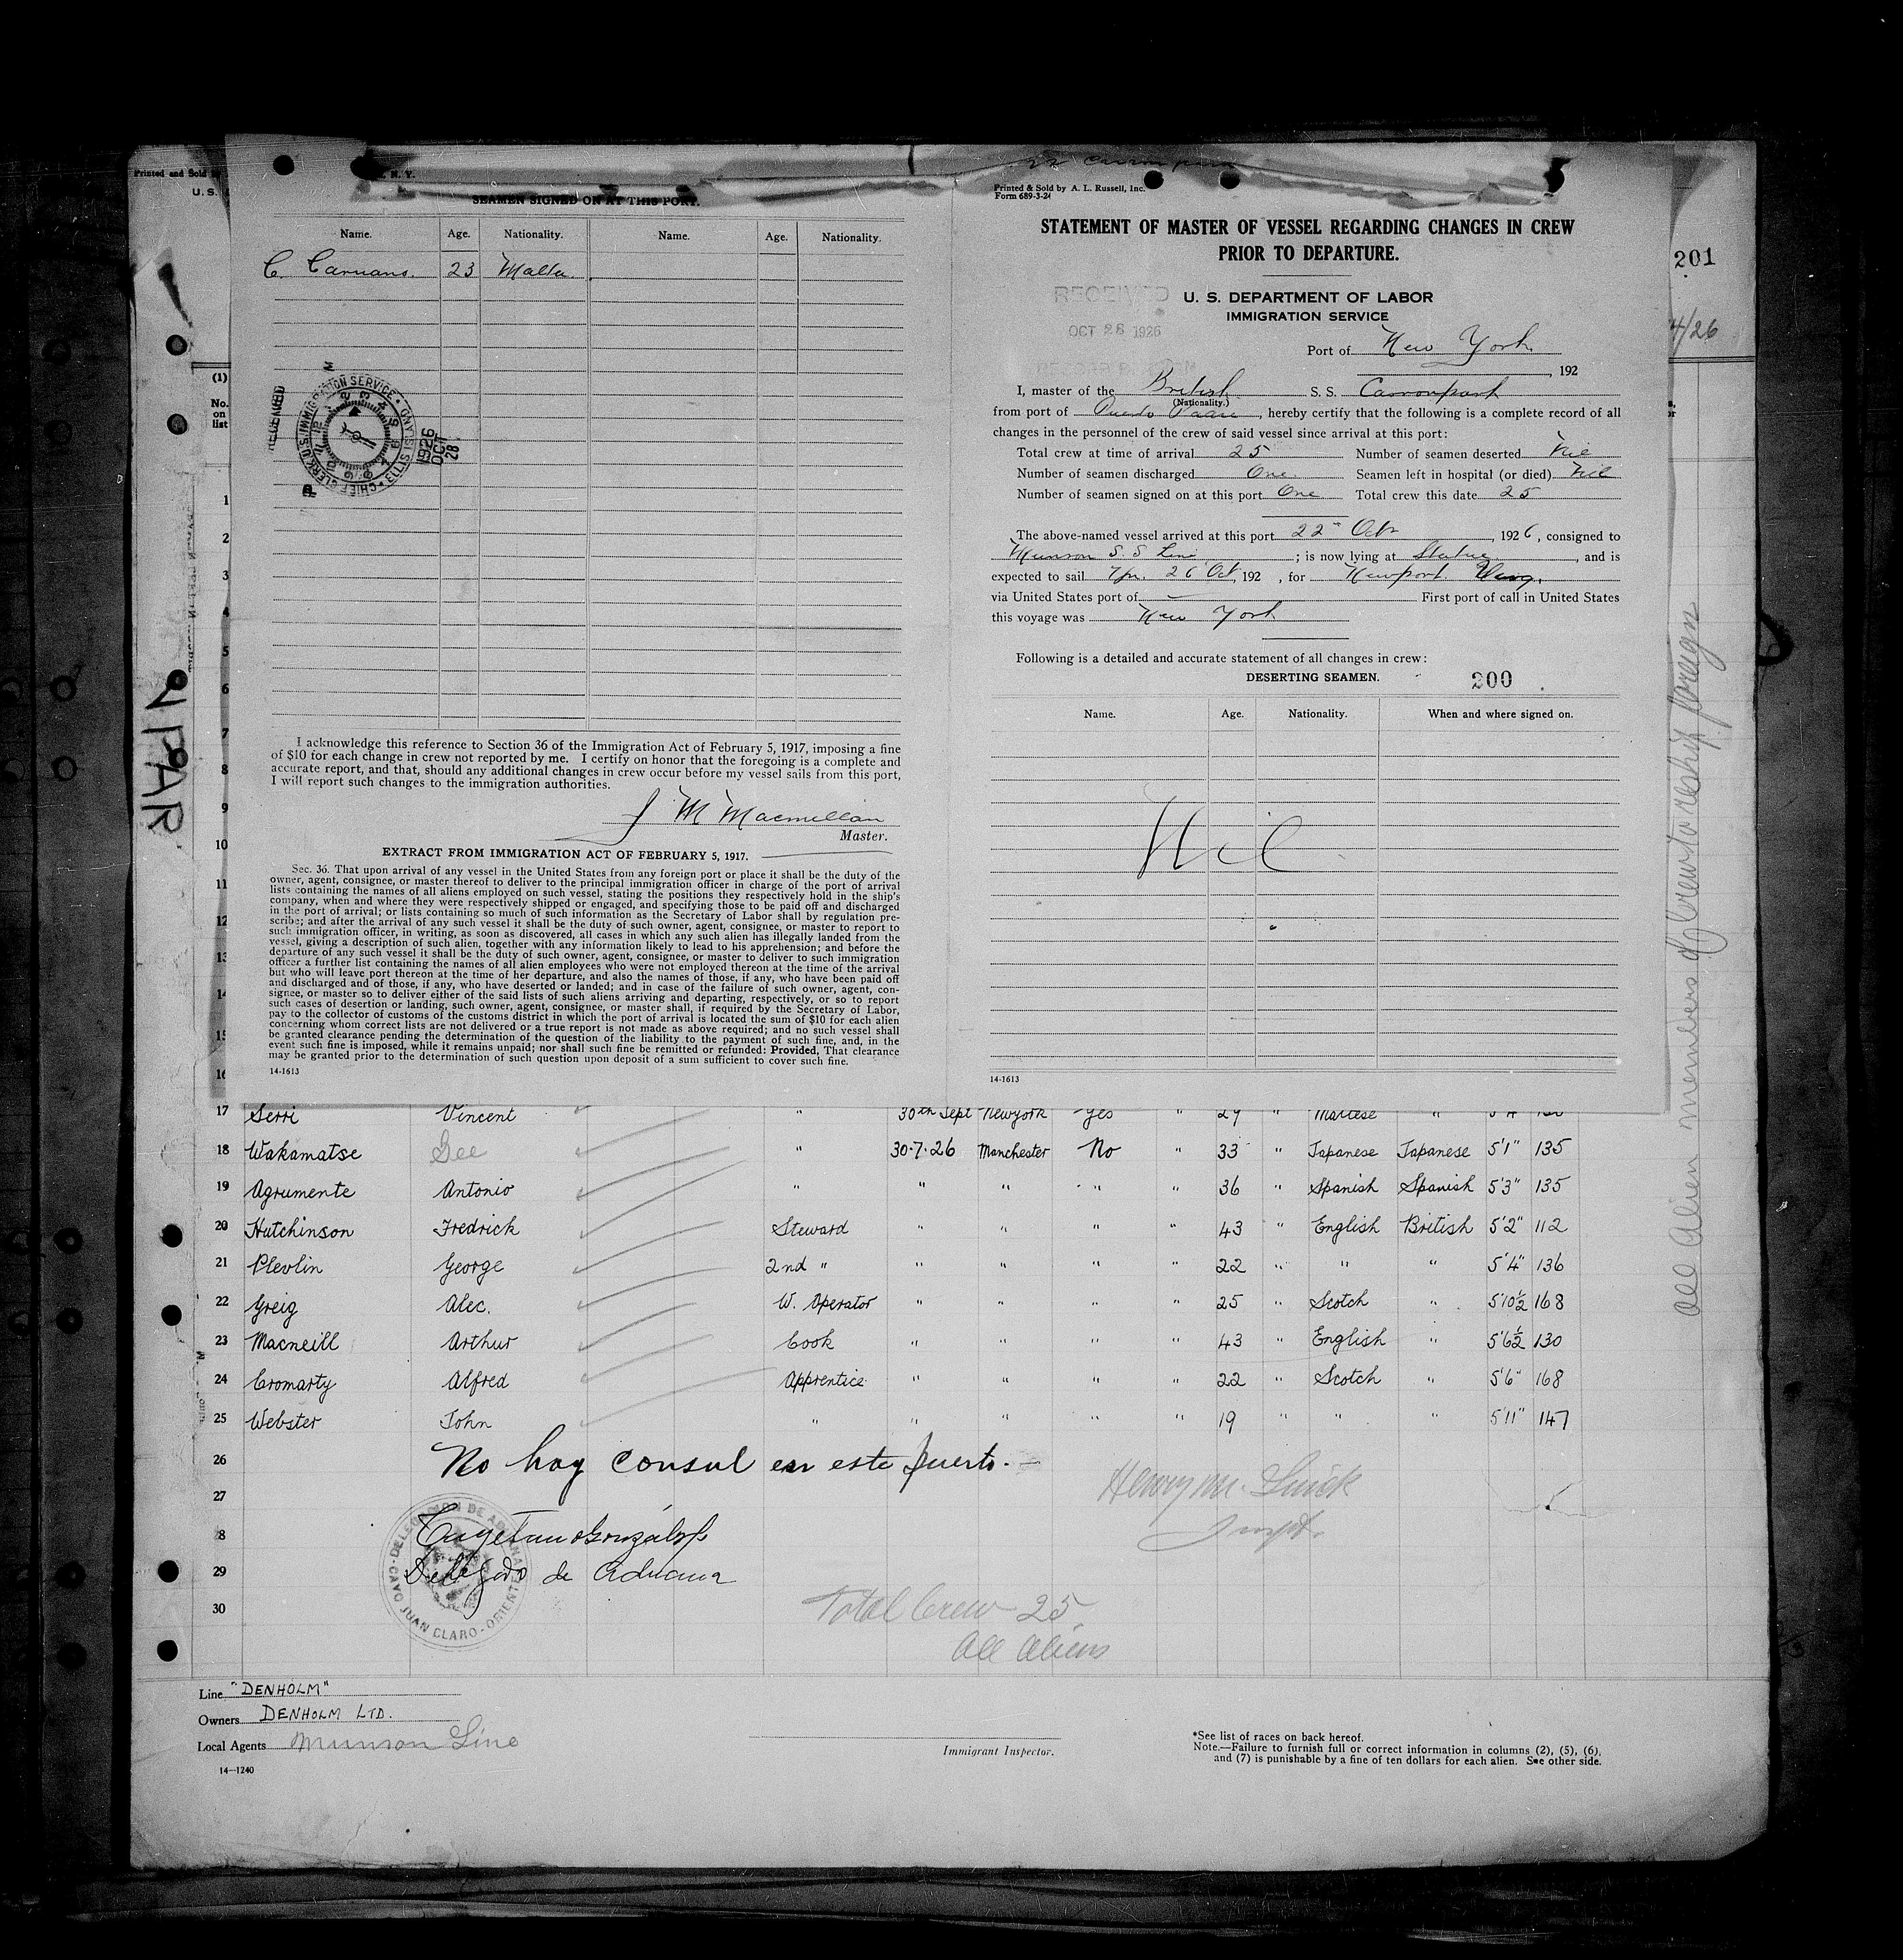 Printed and Sold by
N. Y.
U. S.
SEAMEN SIGNED ON AT THIS PORT.
Name. Age. Nationality. Name. Age. Nationality.
C. Caruana. 23 Malta.
RECEIVED
CHIEF CLERK, U.S. IMMIGRATION SERVICE ELLIS ISLAND
1926
OCT
28
I acknowledge this reference to Section 36 of the Immigration Act of February 5, 1917, imposing a fine
of $10 for each change in crew not reported by me. I certify on honor that the foregoing is a complete and
accurate report, and that, should any additional changes in crew occur before my vessel sails from this port,
I will report such changes to the immigration authorities.
J M Macmillan
Master.
EXTRACT FROM IMMIGRATION ACT OF FEBRUARY 5, 1917.
Sec. 36. That upon arrival of any vessel in the United States from any foreign port or place it shall be the duty of the
owner, agent, consignee, or master thereof to deliver to the principal immigration officer in charge of the port of arrival
lists containing the names of all aliens employed on such vessel, stating the positions they respectively hold in the ship's
company, when and where they were respectively shipped or engaged, and specifying those to be paid off and discharged
in the port of arrival; or lists containing so much of such information as the Secretary of Labor shall by regulation pre-
scribe; and after the arrival of any such vessel it shall be the duty of such owner, agent, consignee, or master to report to
such immigration officer, in writing, as soon as discovered, all cases in which any such alien has illegally landed from the
vessel, giving a description of such alien, together with any information likely to lead to his apprehension; and before the
departure of any such vessel it shall be the duty of such owner, agent, consignee, or master to deliver to such immigration
officer a further list containing the names of all alien employees who were not employed thereon at the time of the arrival
but who will leave port thereon at the time of her departure, and also the names of those, if any, who have been paid off
and discharged and of those, if any, who have deserted or landed; and in case of the failure of such owner, agent, con-
signee, or master so to deliver either of the said lists of such aliens arriving and departing, respectively, or so to report
such cases of desertion or landing, such owner, agent, consignee, or master shall, if required by the Secretary of Labor,
pay to the collector of customs of the customs district in which the port of arrival is located the sum of $10 for each alien
concerning whom correct lists are not delivered or a true report is not made as above required; and no such vessel shall
be granted clearance pending the determination of the question of the liability to the payment of such fine, and, in the
event such fine is imposed, while it remains unpaid; nor shall such fine be remitted or refunded: Provided, That clearance
may be granted prior to the determination of such question upon deposit of a sum sufficient to cover such fine.
14-1613
Printed & Sold by A. L. Russell, Inc.
Form 689-3-24
STATEMENT OF MASTER OF VESSEL REGARDING CHANGES IN CREW
PRIOR TO DEPARTURE.
RECEIVED
OCT 28 1926
U. S. DEPARTMENT OF LABOR
IMMIGRATION SERVICE
Port of New York
, 192
I, master of the British S. S. Carronpark
(Nationality.)
from port of Puerto Padre, hereby certify that the following is a complete record of all
changes in the personnel of the crew of said vessel since arrival at this port:
Total crew at time of arrival 25 Number of seamen deserted Nil
Number of seamen discharged One Seamen left in hospital (or died) Nil
Number of seamen signed on at this port One Total crew this date 25
The above-named vessel arrived at this port 22 Oct, 1926, consigned to
Munson S. S Line; is now lying at Statue, and is
expected to sail 26 Oct, 192 , for Newport
via United States port of First port of call in United States
this voyage was New York
Following is a detailed and accurate statement of all changes in crew:
DESERTING SEAMEN. 200
Name. Age. Nationality. When and where signed on.
Nil
14-1613
201
4/26
All alien members of crew to reship foreign
(1)
No.
on
list
1
2
3
4
5
6
7
8
9
10
11
12
13
14
15
16
17 Serri Vincent " 30th Sept Newyork Yes " 29 " Maltese "
18 Wakamatse Gee " 30.7.26 Manchester No " 33 " Japanese Japanese 5'1" 135
19 Agrumente Antonio " " " " " 36 " Spanish Spanish 5'3" 135
20 Hutchinson Fredrick Steward " " " " 43 " English British 5'2" 112
21 Plevlin George 2nd " " " " " 22 " " " 5'4" 136
22 Greig Alec. W. Operator " " " " 25 " Scotch " 5'10½ 168
23 Macneill Arthur Cook " " " " 43 " English " 5'6½ 130
24 Cromarty Alfred Apprentice " " " " 22 " Scotch " 5'6" 168
25 Webster John " " " " " 19 " " " 5'11" 147
26 No hay consul en este puerto.—
27
Henry M. Quick
Inspt.
8 Cayetano González
29 Delegado de Aduana
30
DELEGACION DE ADUANA CAYO JUAN CLARO - ORIENTE
Total Crew 25
All aliens
Line "DENHOLM"
Owners DENHOLM LTD.
Local Agents Munson Line
14—1240
Immigrant Inspector.
*See list of races on back hereof.
Note.—Failure to furnish full or correct information in columns (2), (5), (6),
and (7) is punishable by a fine of ten dollars for each alien. See other side.